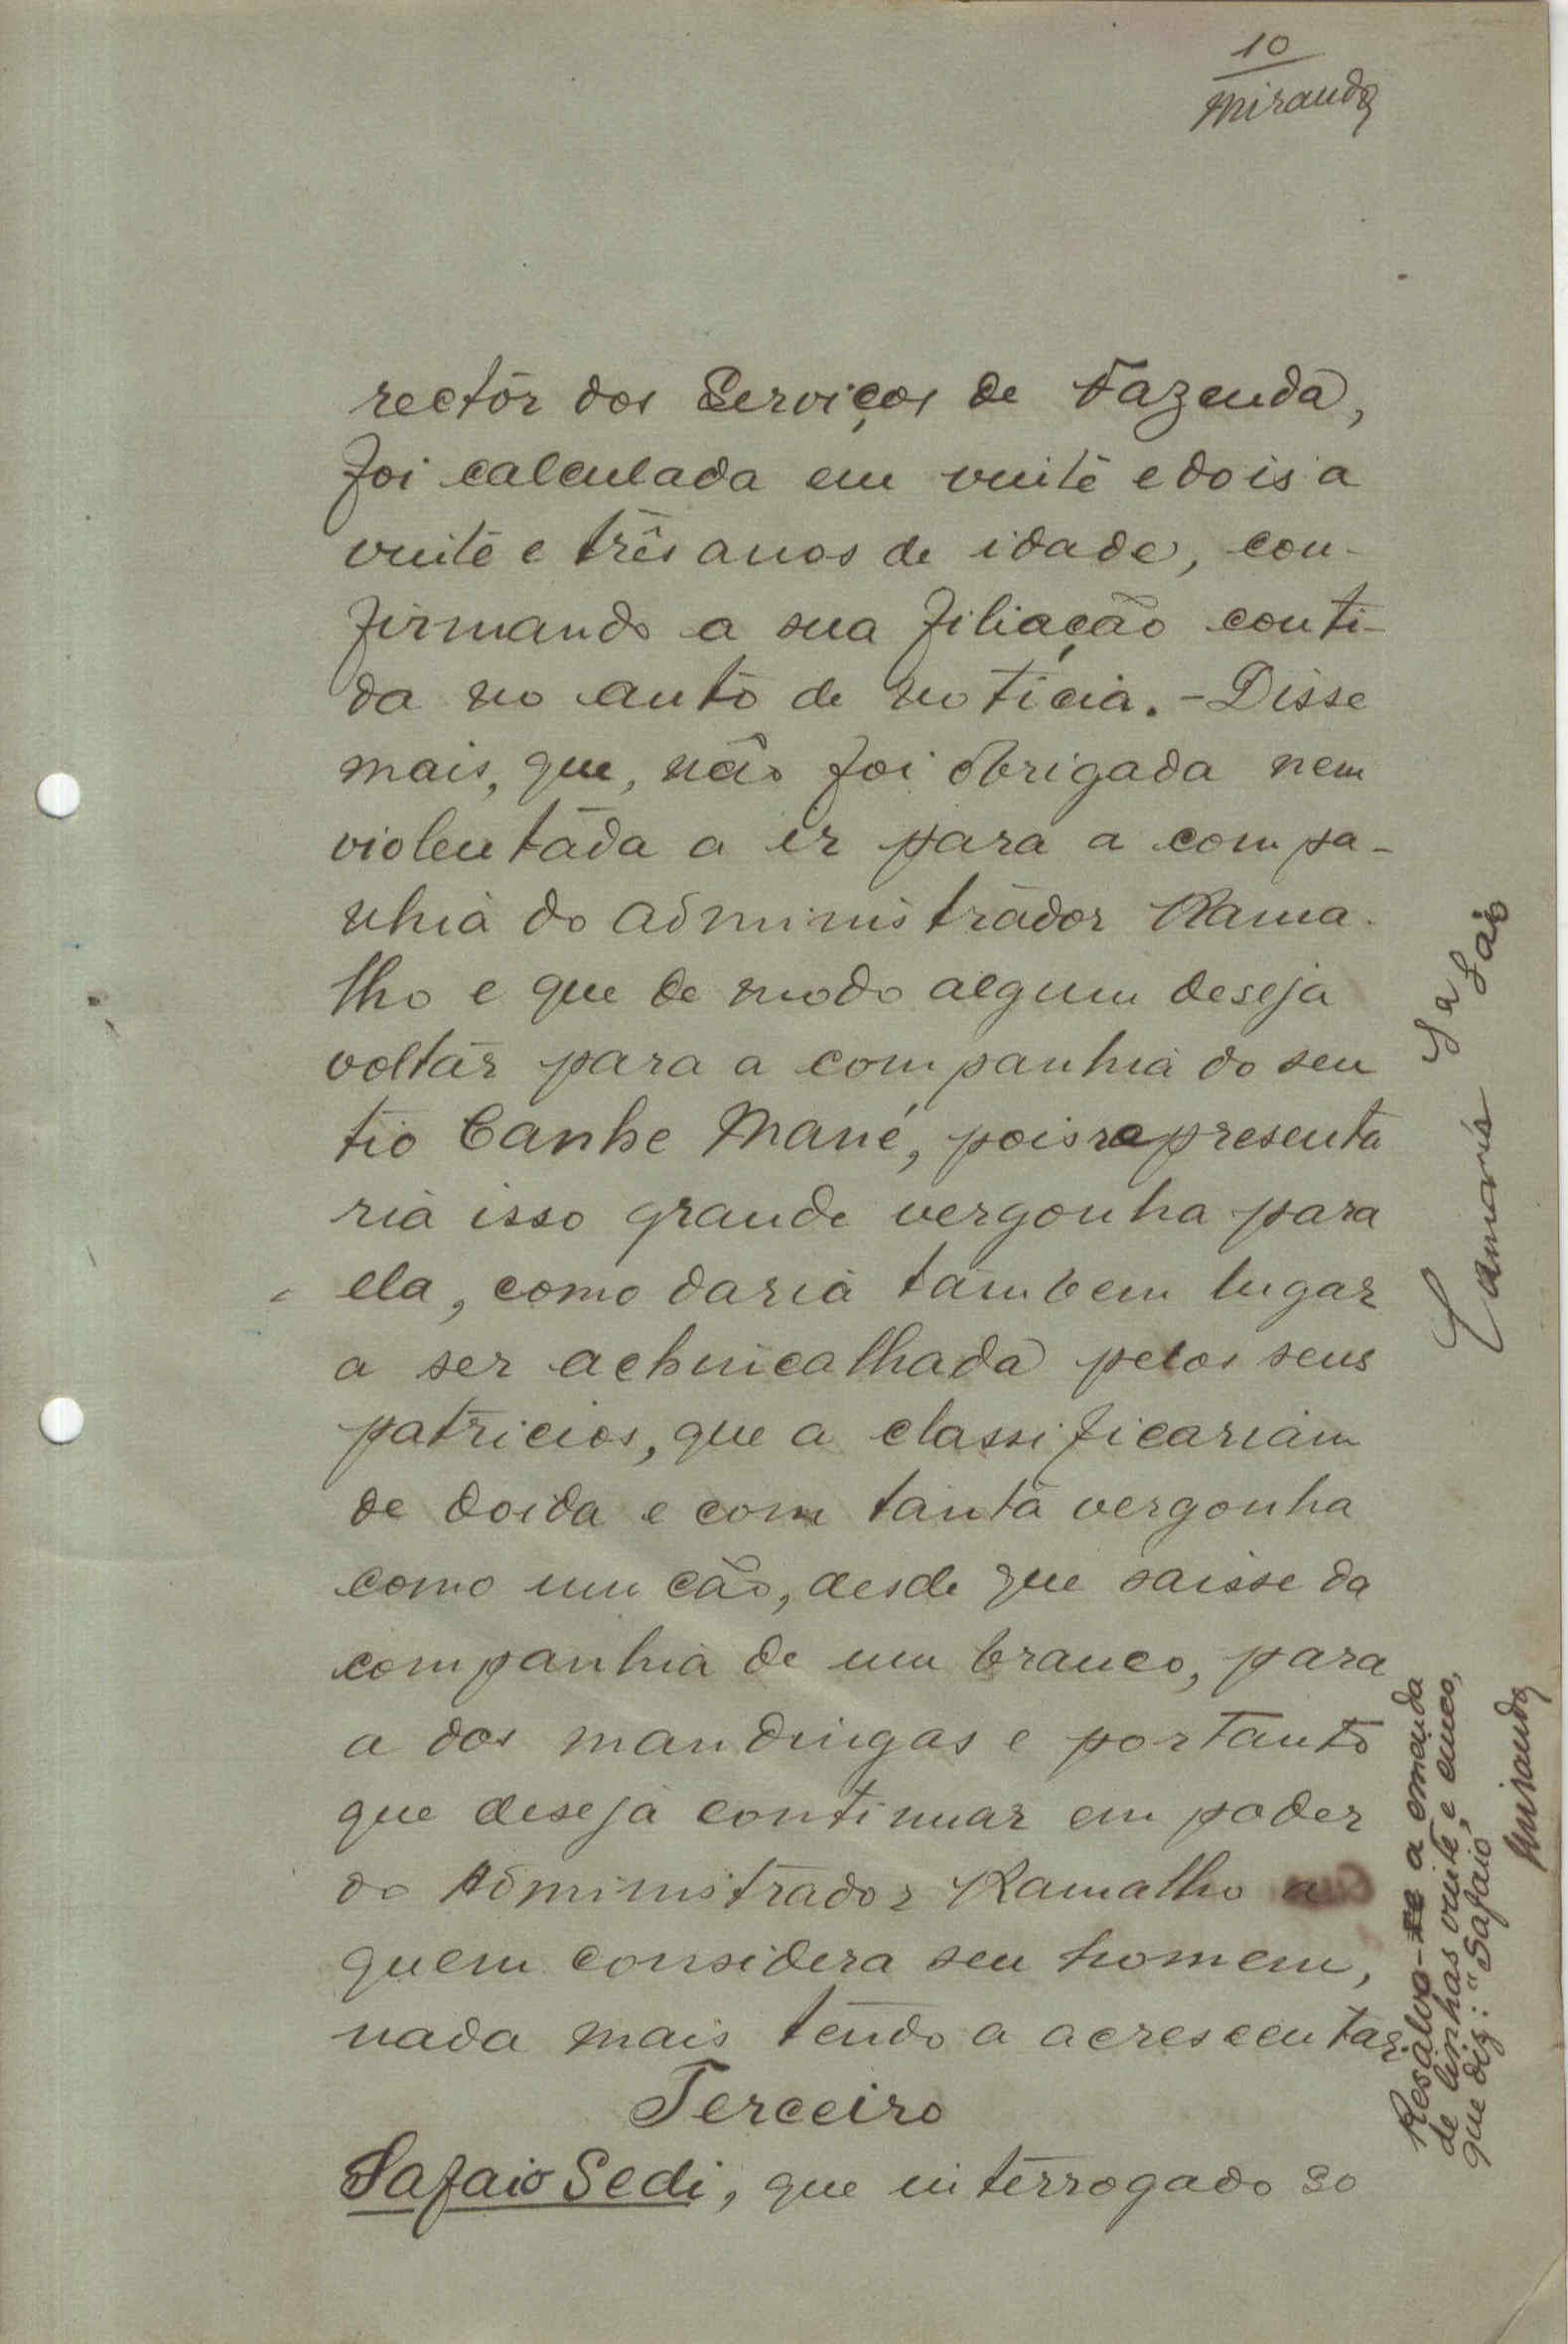 10
Miranda
rectôr dos Serviços de Fazenda,
foi calculada em vinte e dois a
vinte e três anos de idade, con-
firmando a sua filiação conti-
da no auto de noticia. - Disse
mais, que, não foi obrigada nem
violentada a ir para a compa-
nhia do administrador Rama-
lho e que de modo algum deseja
voltar para a companhia do seu
tio Canhe Mané, pois representa
ria isso grande vergonha para
ela, como daria tambem lugar
a ser achincalhada pelos seus
patricios, que a classificariam
de doida e com tanta vergonha
como um cão, desde que saisse da
companhia de um branco, para
a dos mandingas e portanto
que deseja continuar em poder
do Administrador Ramalho a
quem considera seu homem,
nada mais tendo a acrescentar.
Terceiro
Safaio Sedi, que interrogado so
Resalvo-se a emenda
de linhas vinte e cinco,
que diz: "Safaio"
Miranda